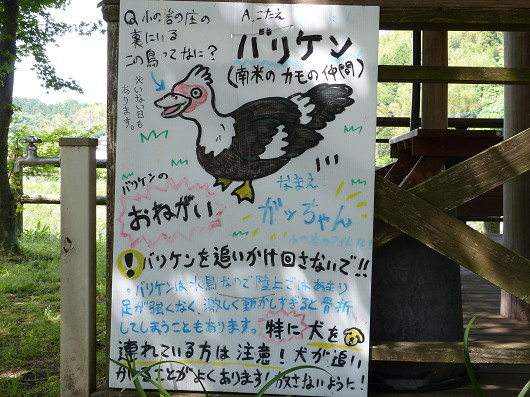 Q.小の岩の庄の
裏にいる
この鳥ってなに?
※いない日も
あります。
A.こたえ
バリケン
(南米のカモの仲間)
バリケンの
おねがい
なまえ
ガッちゃん
!バリケンを追いかけ回さないで!!
・バリケンは水鳥なので陸上ではあまり
足が強くなく、激しく動かしすぎると骨折
してしまうこともあります。特に犬を
連れている方は注意!犬が追い
かけることがよくあります!放さないように!